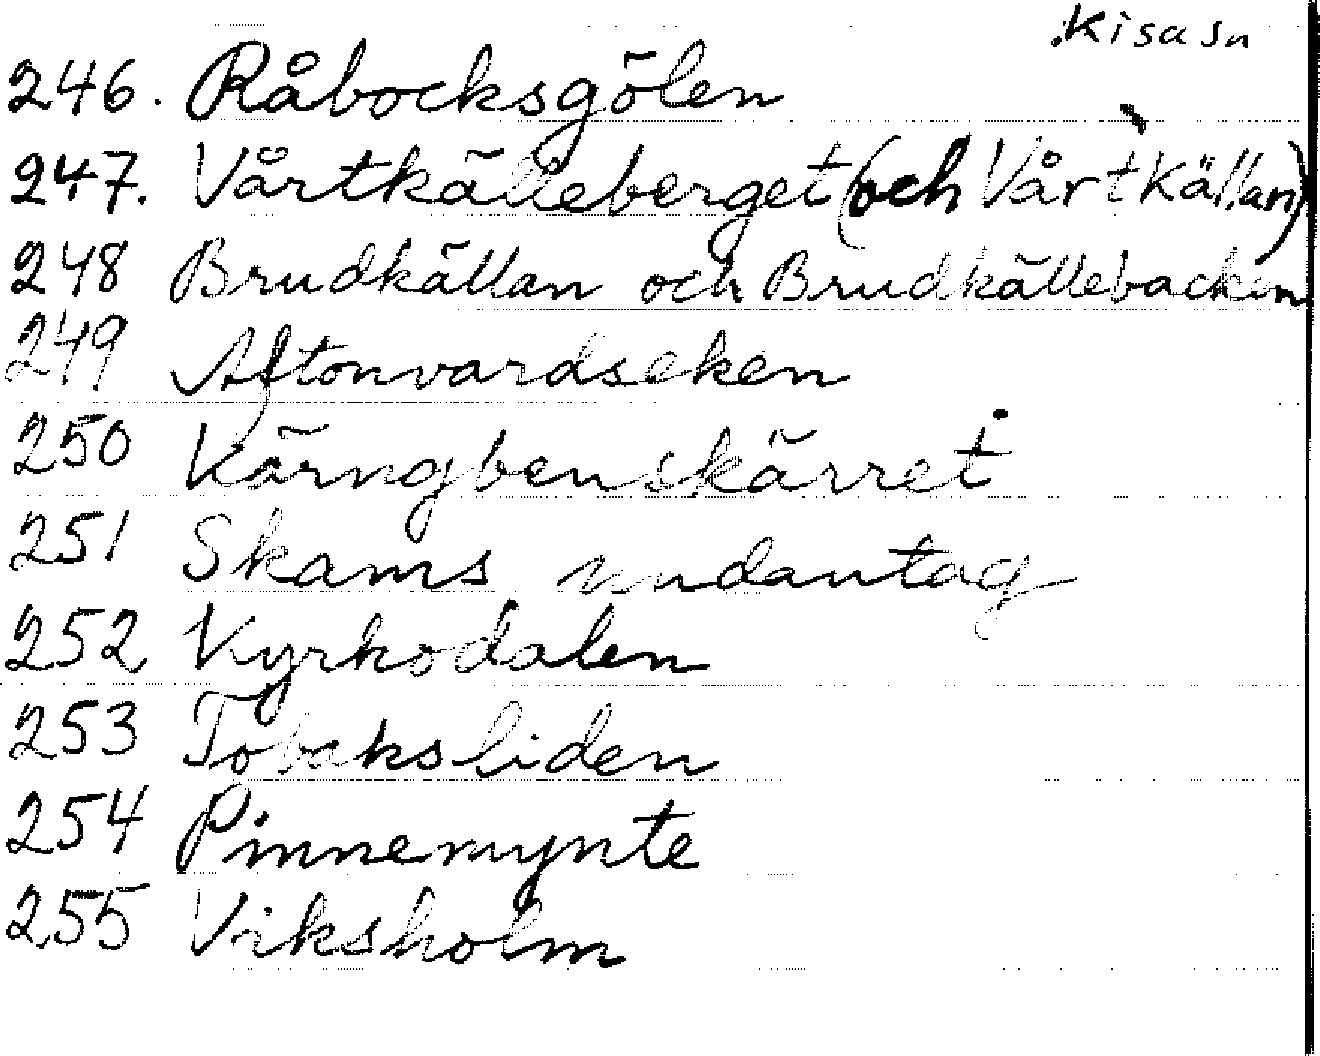 Kisa sn
246. Råbocksgölen
247. Vårtkälleberget (och Vårtkällan)
248 Brudkällan och Brudkällebacken
249 Aftonvardseken
250 Kärngbenskärret
251 Skams undantag
252 Kyrkodalen
253 Tobaksliden
254 Pinnemynte
255 Viksholm